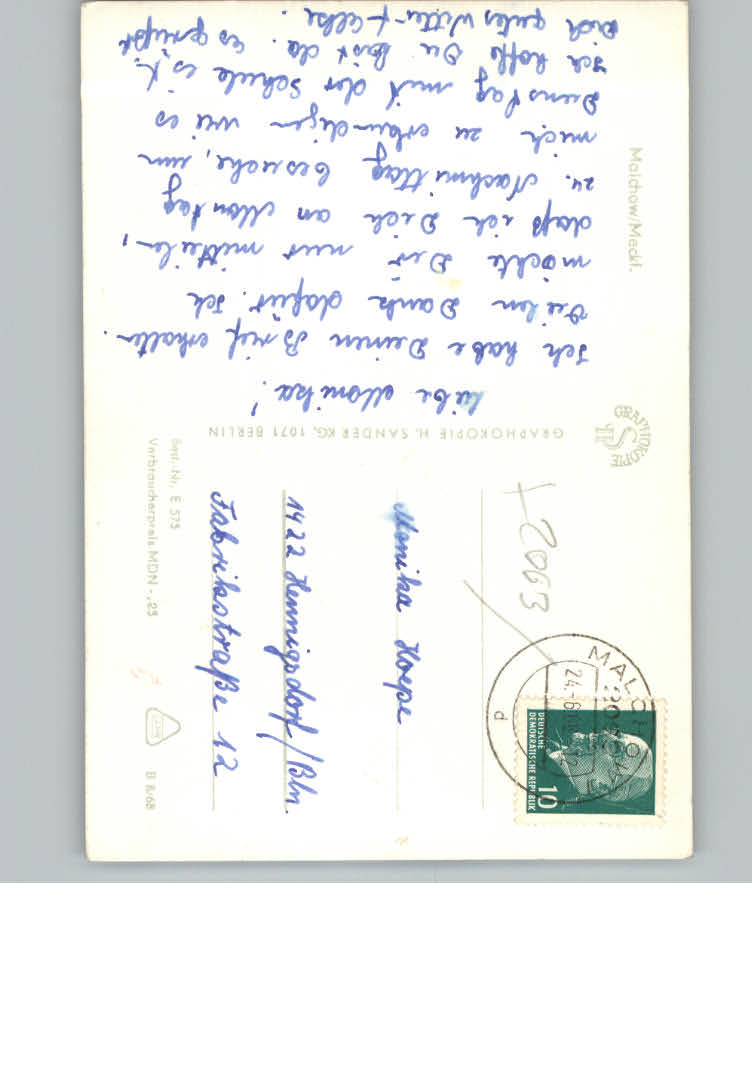 Malchow/Meckl.
Liebe Monika!
Ich habe Deinen Brief erhalten.
Vielen Dank dafür. Ich
möchte Dir nur mitteilen,
daß ich Dich am Montag
24. Nachmittag besuche, um
mich zu erkundigen wie es
Dienstag mit der Schule ist.
Ich hoffe Du bist da. Es grüßt
Dich
GRAPHOKOPIE H. SANDER KG, 1071 BERLIN
GRAPHOKOPIE
+ 2063
MALCHOW
24.-6
d
DEUTSCHE
DEMOKRATISCHE REPUBLIK
10
Monika Hoepe
1422 Hennigsdorf/Bln.
Fabrikstraße 12
Best.-Nr. E 575
Verbraucherpreis MDN -,25
B 8/68